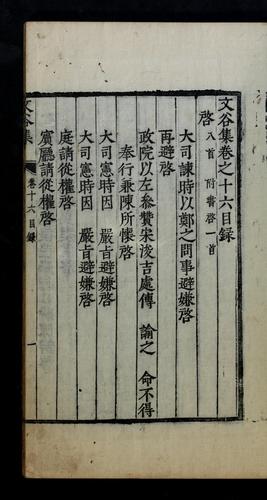 文谷集卷之十六目録
啓 八首 附書啓一首
大司諫時以鄭之問事避嫌啓
再避啓
政院以左參贊宋浚吉處傳 諭之 命不得
奉行兼陳所懷啓
大司憲時因 嚴旨避嫌啓
大司憲時因 嚴旨避嫌啓
庭請從權啓
賓廳請從權啓
文谷集
卷十六目録
一